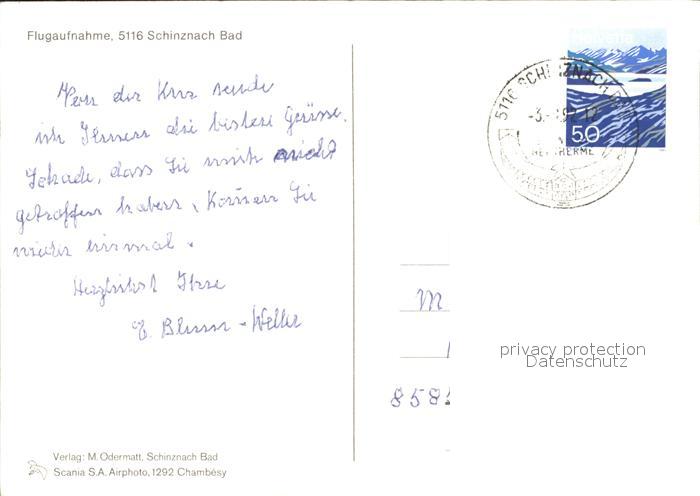 Flugaufnahme, 5116 Schinznach Bad
Von der Kur sende
ich Ihnen die besten Grüsse.
Schade, dass Sie mich nicht
getroffen haben, Kommen Sie
wieder einmal.
Herzlichst Ihre
E. Blum-Weller
Verlag: M. Odermatt, Schinznach Bad
Scania S.A. Airphoto, 1292 Chambésy
Helvetia
50
5116 SCHINZNACH
THERME
M
858
privacy protection
Datenschutz